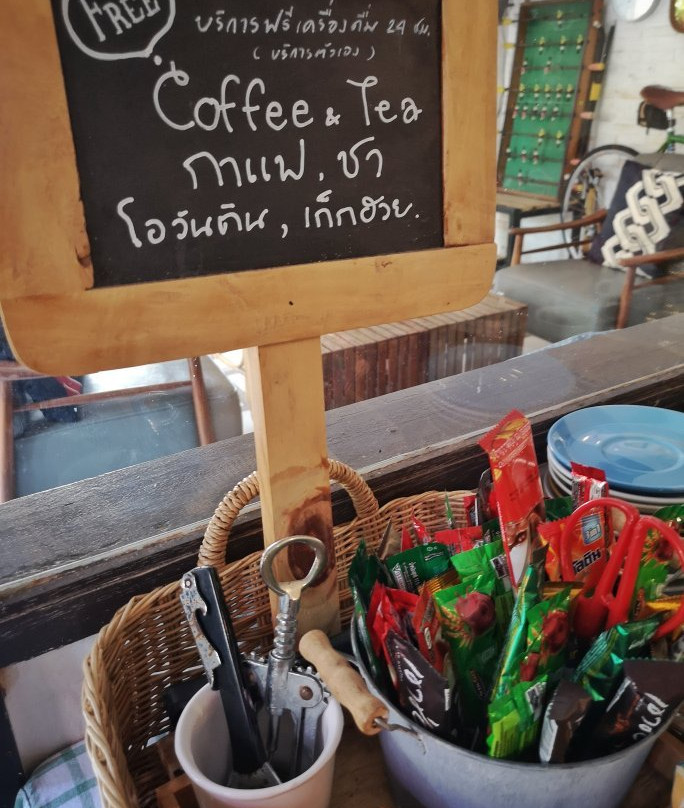 FREE
บริการฟรีเครื่องดื่ม 24 ชม.
( บริการตัวเอง )
Coffee & Tea
กาแฟ, ชา
โอวันติน, เก็กฮวย.